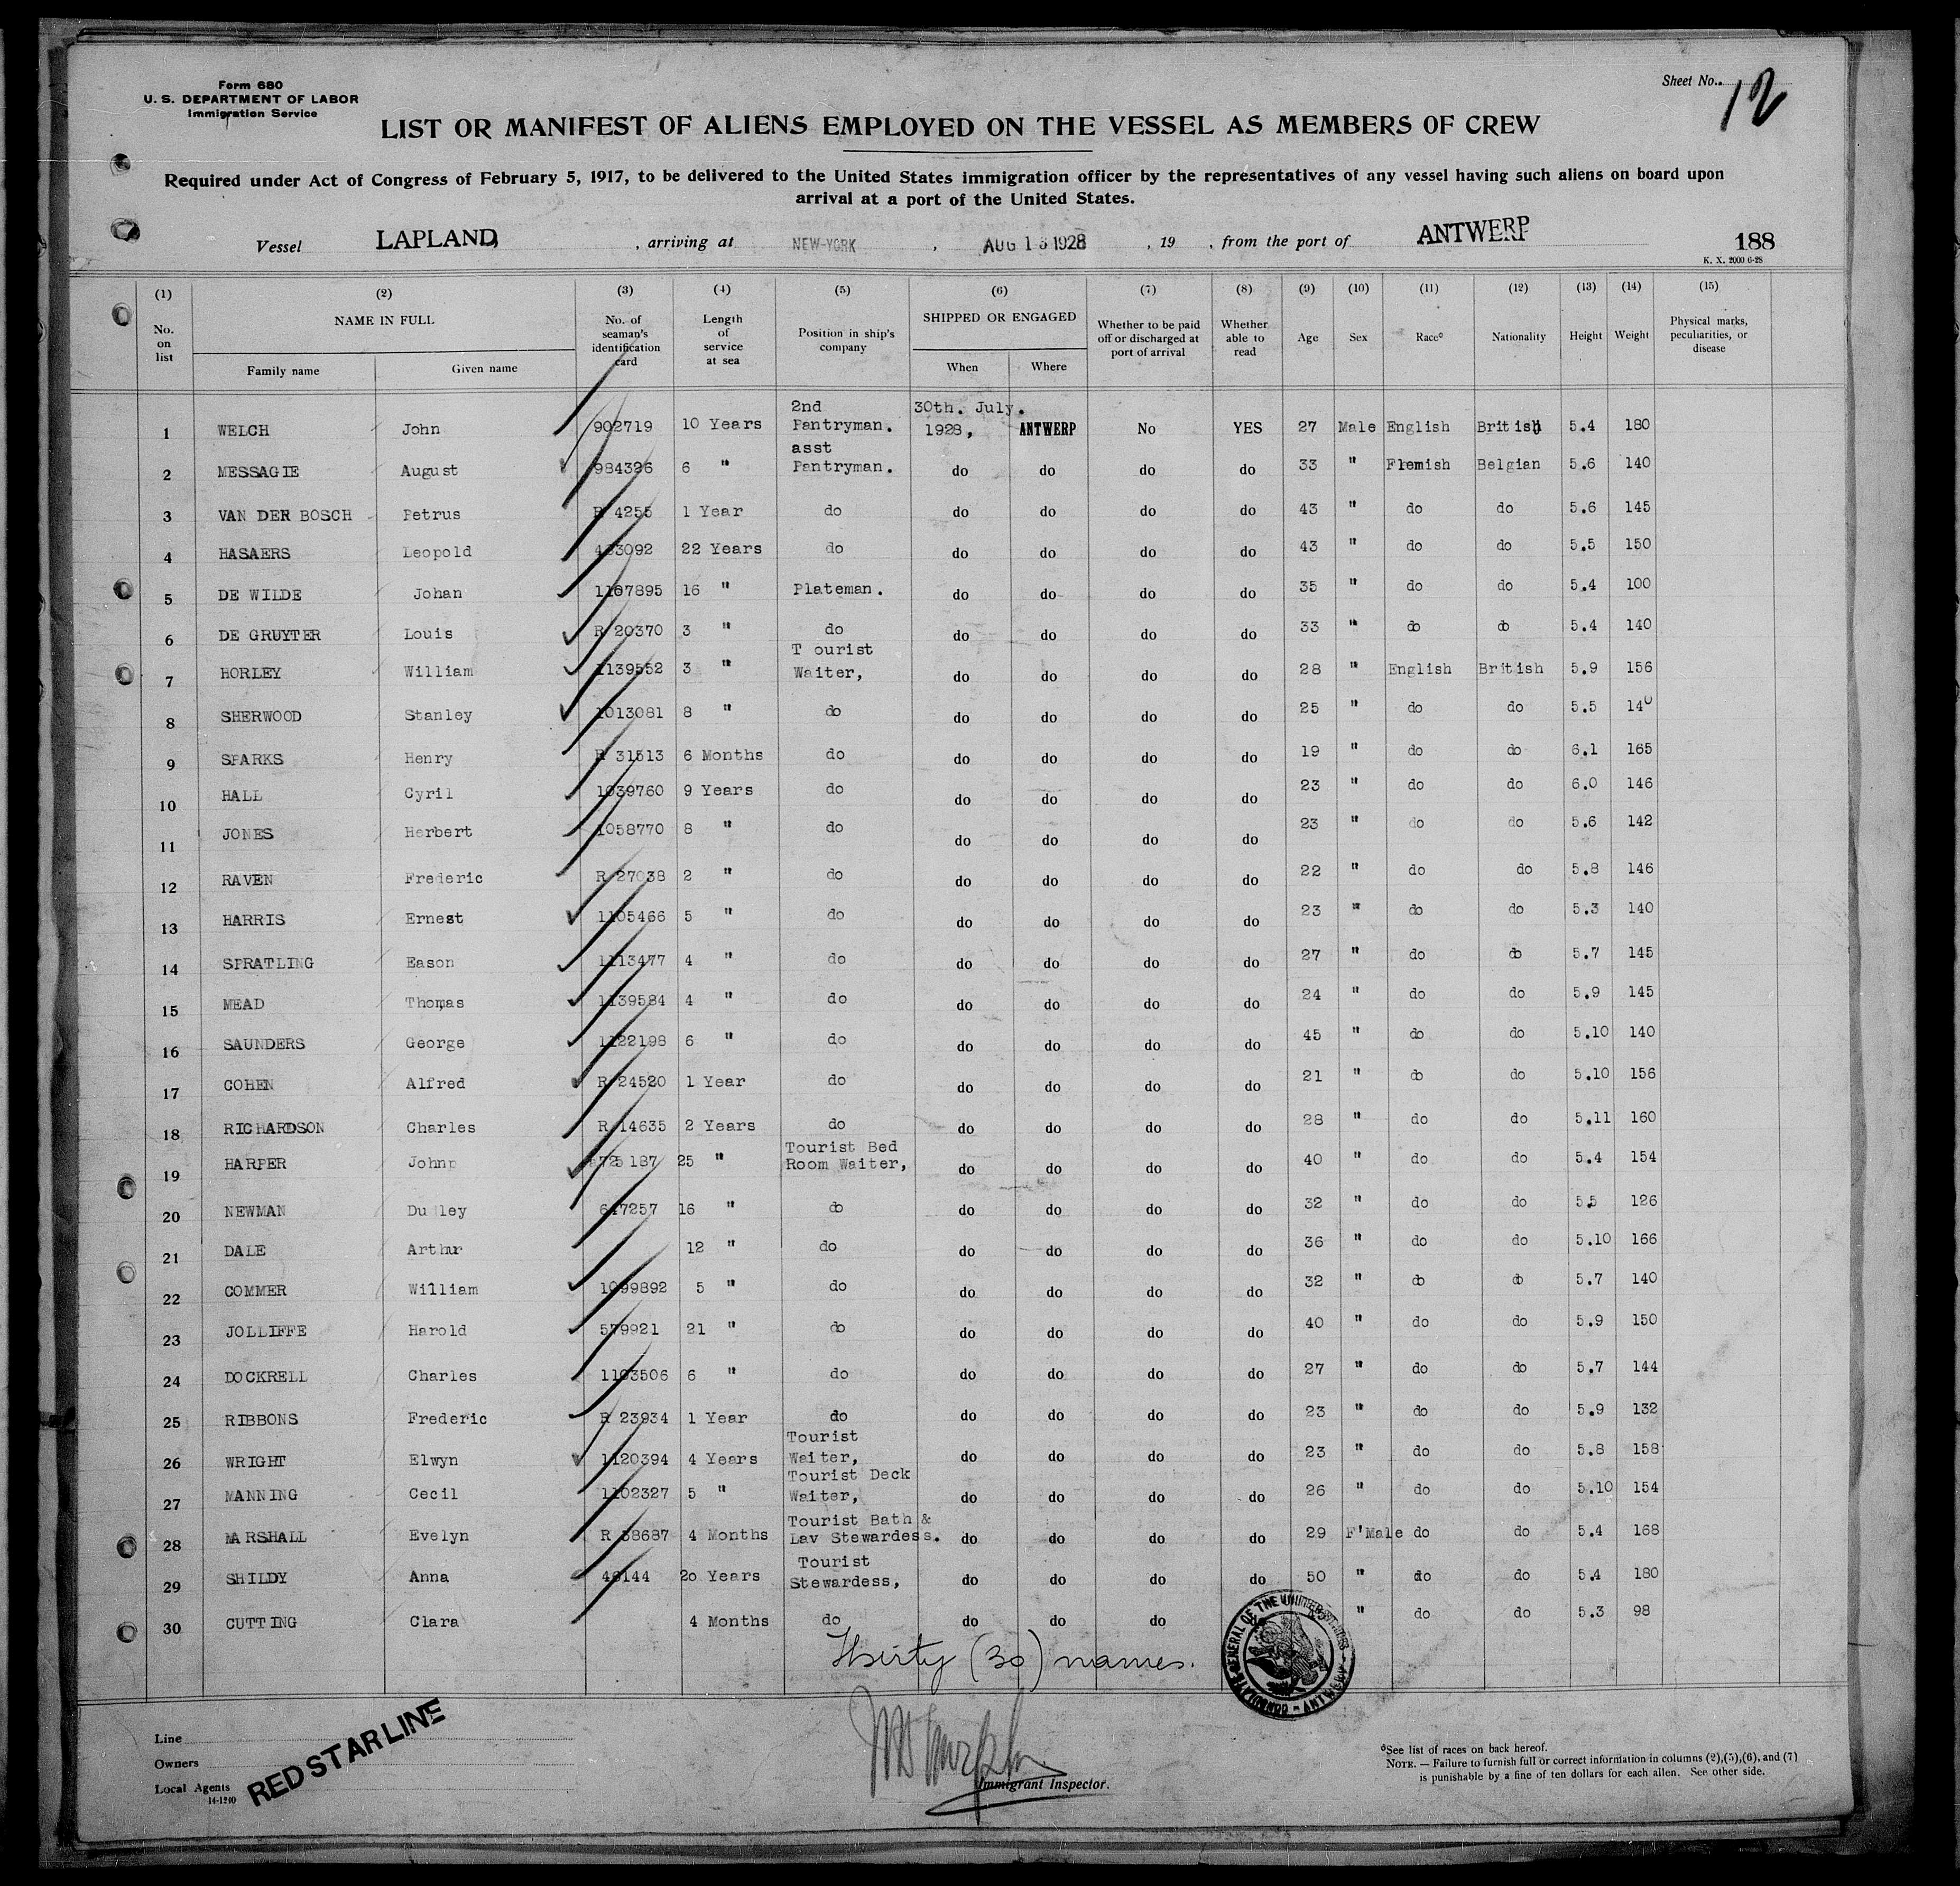 Form 680
U. S. DEPARTMENT OF LABOR
Immigration Service
Sheet No. 12
LIST OR MANIFEST OF ALIENS EMPLOYED ON THE VESSEL AS MEMBERS OF CREW
Required under Act of Congress of February 5, 1917, to be delivered to the United States immigration officer by the representatives of any vessel having such aliens on board upon
arrival at a port of the United States.
Vessel LAPLAND, , arriving at NEW-YORK , AUG 13 1928 , 19 , from the port of ANTWERP 188
K. X. 2000 6-28
(1) (2) (3) (4) (5) (6) (7) (8) (9) (10) (11) (12) (13) (14) (15)
No. on list NAME IN FULL Family name Given name No. of seaman's identification card Length of service at sea Position in ship's company SHIPPED OR ENGAGED When Where Whether to be paid off or discharged at port of arrival Whether able to read Age Sex Race° Nationality Height Weight Physical marks, peculiarities, or disease
1 WELCH John 902719 10 Years 2nd Pantryman. 30th. July. 1928, ANTWERP No YES 27 Male English British 5.4 180
2 MESSAGIE August 984326 6 " asst Pantryman. do do do do 33 " Flemish Belgian 5.6 140
3 VAN DER BOSCH Petrus R 4255 1 Year do do do do do 43 " do do 5.6 145
4 HASAERS Leopold 433092 22 Years do do do do do 43 " do do 5.5 150
5 DE WILDE Johan 1167895 16 " Plateman. do do do do 35 " do do 5.4 100
6 DE GRUYTER Louis R 20370 3 " do do do do do 33 " do do 5.4 140
7 HORLEY William 1139552 3 " T ourist Waiter, do do do do 28 " English British 5.9 156
8 SHERWOOD Stanley 1013081 8 " do do do do do 25 " do do 5.5 140
9 SPARKS Henry R 31513 6 Months do do do do do 19 " do do 6.1 165
10 HALL Cyril 1039760 9 Years do do do do do 23 " do do 6.0 146
11 JONES Herbert 1058770 8 " do do do do do 23 " do do 5.6 142
12 RAVEN Frederic R 27038 2 " do do do do do 22 " do do 5.8 146
13 HARRIS Ernest 1105466 5 " do do do do do 23 " do do 5.3 140
14 SPRATLING Eason 1113477 4 " do do do do do 27 " do do 5.7 145
15 MEAD Thomas 1139584 4 " do do do do do 24 " do do 5.9 145
16 SAUNDERS George 1122198 6 " do do do do do 45 " do do 5.10 140
17 COHEN Alfred R 24520 1 Year do do do do do 21 " do do 5.10 156
18 RICHARDSON Charles R 14635 2 Years do do do do do 28 " do do 5.11 160
19 HARPER John 725187 25 " Tourist Bed Room Waiter, do do do do 40 " do do 5.4 154
20 NEWMAN Dudley 647257 16 " do do do do do 32 " do do 5.5 126
21 DALE Arthur 12 " do do do do do 36 " do do 5.10 166
22 COMMER William 1099892 5 " do do do do do 32 " do do 5.7 140
23 JOLLIFFE Harold 579921 21 " do do do do do 40 " do do 5.9 150
24 DOCKRELL Charles 1103506 6 " do do do do do 27 " do do 5.7 144
25 RIBBONS Frederic R 23934 1 Year do do do do do 23 " do do 5.9 132
26 WRIGHT Elwyn 1120394 4 Years Tourist Waiter, do do do do 23 " do do 5.8 158
27 MANNING Cecil 1102327 5 " Tourist Deck Waiter, do do do do 26 " do do 5.10 154
28 MARSHALL Evelyn R 38687 4 Months Tourist Bath & Lav Stewardess. do do do do 29 F'Male do do 5.4 168
29 SHILDY Anna 46144 20 Years Tourist Stewardess, do do do do 50 " do do 5.4 180
30 CUTTING Clara 4 Months do do do do " do do 5.3 98
Thirty (30) names.
Line
Owners
Local Agents
14-1240
RED STAR LINE
Immigrant Inspector.
°See list of races on back hereof.
NOTE. — Failure to furnish full or correct information in columns (2),(5),(6), and (7)
is punishable by a fine of ten dollars for each alien. See other side.